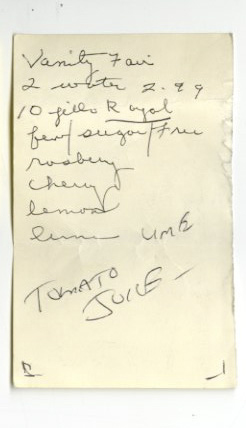 Vanity Fair
2 water 2.99
10 jello Royal
few/sugar/Free
rasbery
chery
lemon
lime LIME
TOMATO
JUICE -